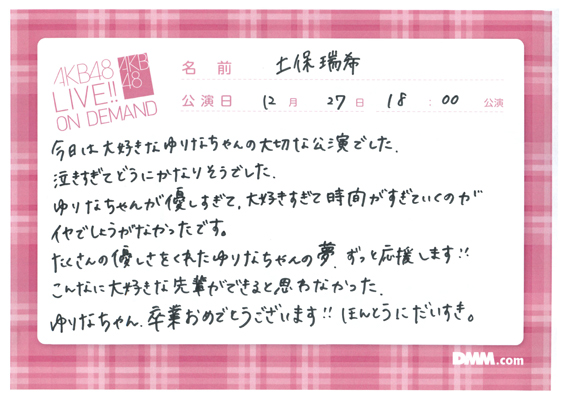 AKB48
LIVE!!
ON DEMAND
AKB
48
名 前 土保瑞希
公演日 12 月 27 日 18 : 00 公演
今日は大好きなゆりなちゃんの大切な公演でした.
泣きすぎてどうにかなりそうでした.
ゆりなちゃんが優しすぎて,大好きすぎて時間がすぎていくのが
イヤでしょうがなかったです。
たくさんの優しさをくれたゆりなちゃんの夢.ずっと応援します!!
こんなに大好きな先輩ができると思わなかった.
ゆりなちゃん.卒業おめでとうございます!! ほんとうにだいすき。
DMM.com